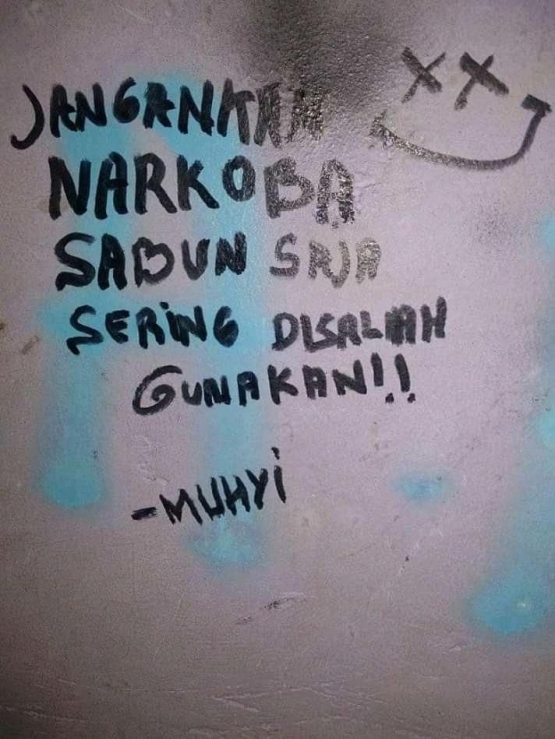 JANGANKAN
NARKOBA
SABUN SAJA
SERiNG DISALAH
GUNAKAN!!
-MUHYi